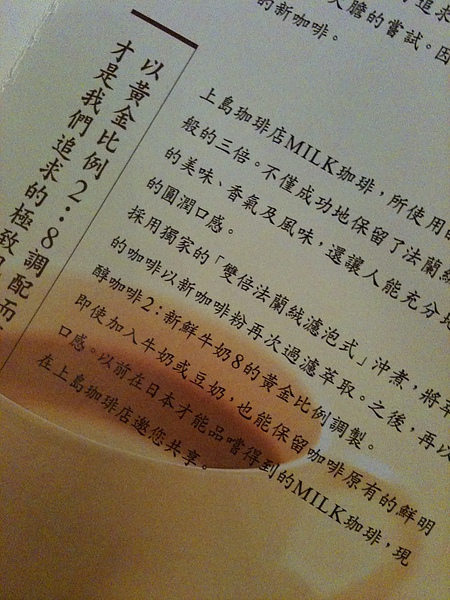 追求
大膽的嘗試。因
的新咖啡。
以黃金比例2：8調配而
才是我們追求的極致
上島珈琲店MILK珈琲，所使用的
般的三倍。不僅成功地保留了法蘭絨
的美味、香氣及風味，還讓人能充分地
的圓潤口感。
採用獨家的「雙倍法蘭絨濾泡式」沖煮，將萃
的咖啡以新咖啡粉再次過濾萃取。之後，再以
醇咖啡2：新鮮牛奶8的黃金比例調製。
即使加入牛奶或豆奶，也能保留咖啡原有的鮮明
口感。以前在日本才能品嚐得到的MILK珈琲，現
在上島珈琲店邀您共享。